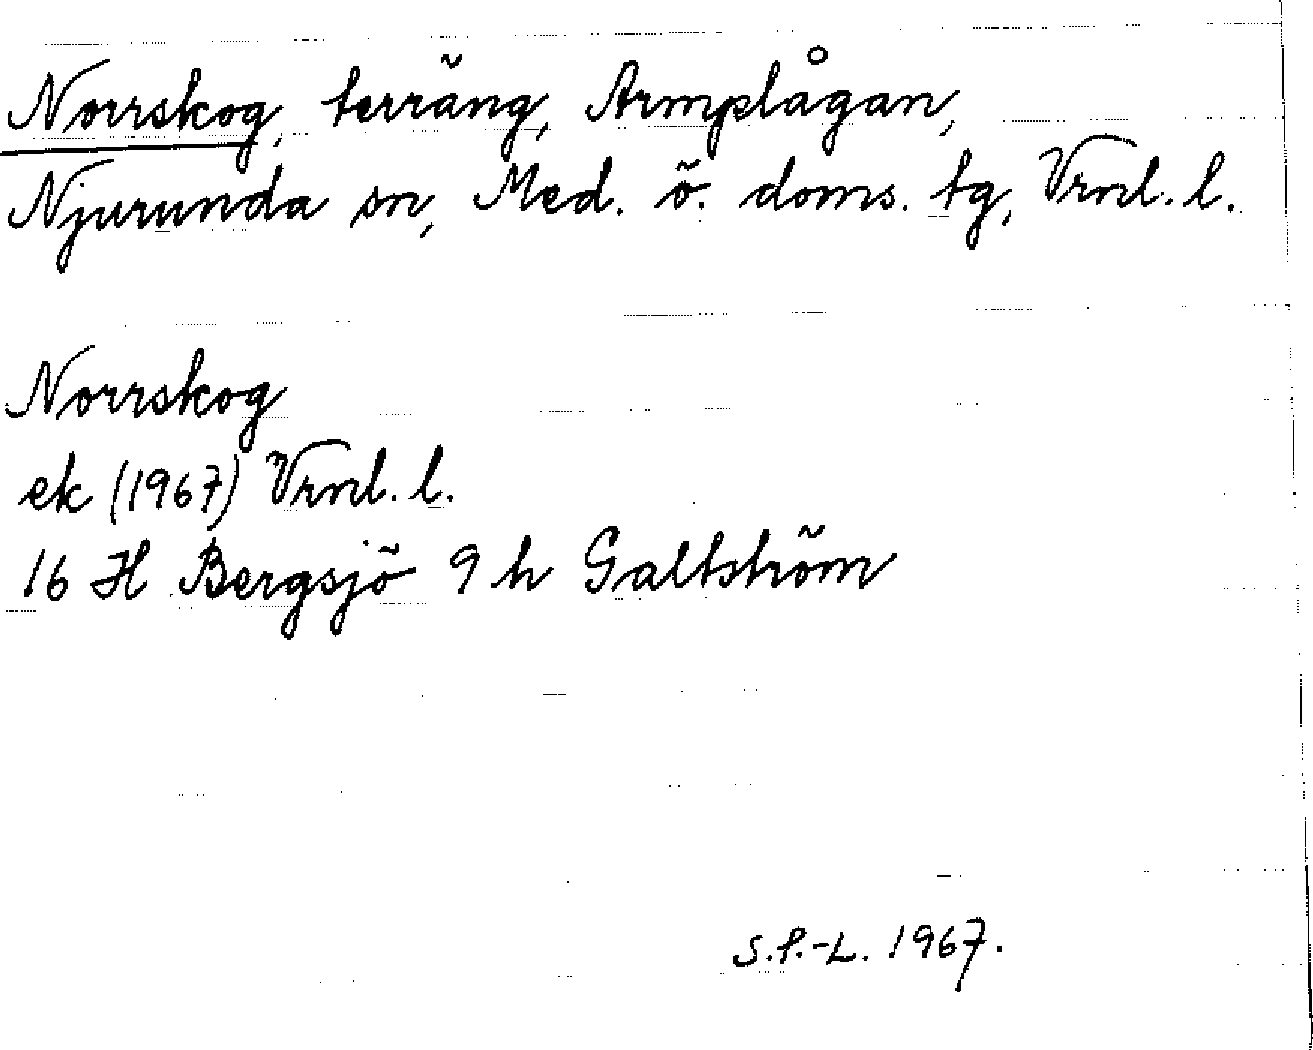 Norrskog, terräng, Armplågan,
Njurunda sn, Med. ö. doms. tg, Vrnl. l.
Norrskog
ek (1967) Vrnl. l.
16 H Bergsjö 9 h Galtström
S.P.-L. 1967.